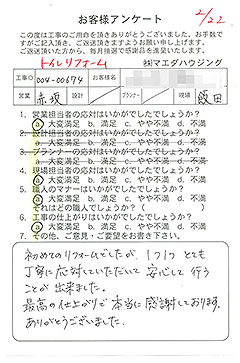 お客様アンケート
2/22
この度は工事のご用命を頂きありがとうございました。お手数で
すがご記入頂き、ご返送頂きますようお願い申し上げます。
ご返送頂いた方から、毎月抽選で感謝品を進呈いたします。
トイレリフォーム ㈱マエダハウジング
工事ID 004-00674 お客様名
営業 赤坂 設計 プランナー 現場 飯田
1. 営業担当者の応対はいかがでしたでしょうか?
a 大変満足 b 満足 c やや不満 d 不満
2. 設計担当者の応対はいかがでしたでしょうか?
a 大変満足 b 満足 c やや不満 d 不満
3. プランナーの応対はいかがでしたでしょうか?
a 大変満足 b 満足 c やや不満 d 不満
4. 現場担当者の応対はいかがでしたでしょうか?
a 大変満足 b 満足 c やや不満 d 不満
5. 職人のマナーはいかがでしたでしょうか?
a 大変満足 b 満足 c やや不満 d 不満
それはどの職人でしょうか?( )
6. 工事の仕上がりはいかがでしたでしょうか?
a 大変満足 b 満足 c やや不満 d 不満
7. その他、ご意見・ご要望をお書き下さい。
初めてのリフォームでしたが、1つ1つ とても
丁寧に応対していただいて 安心して 行う
ことが 出来ました。
最高の仕上がりで 本当に 感謝しております。
ありがとうございました。